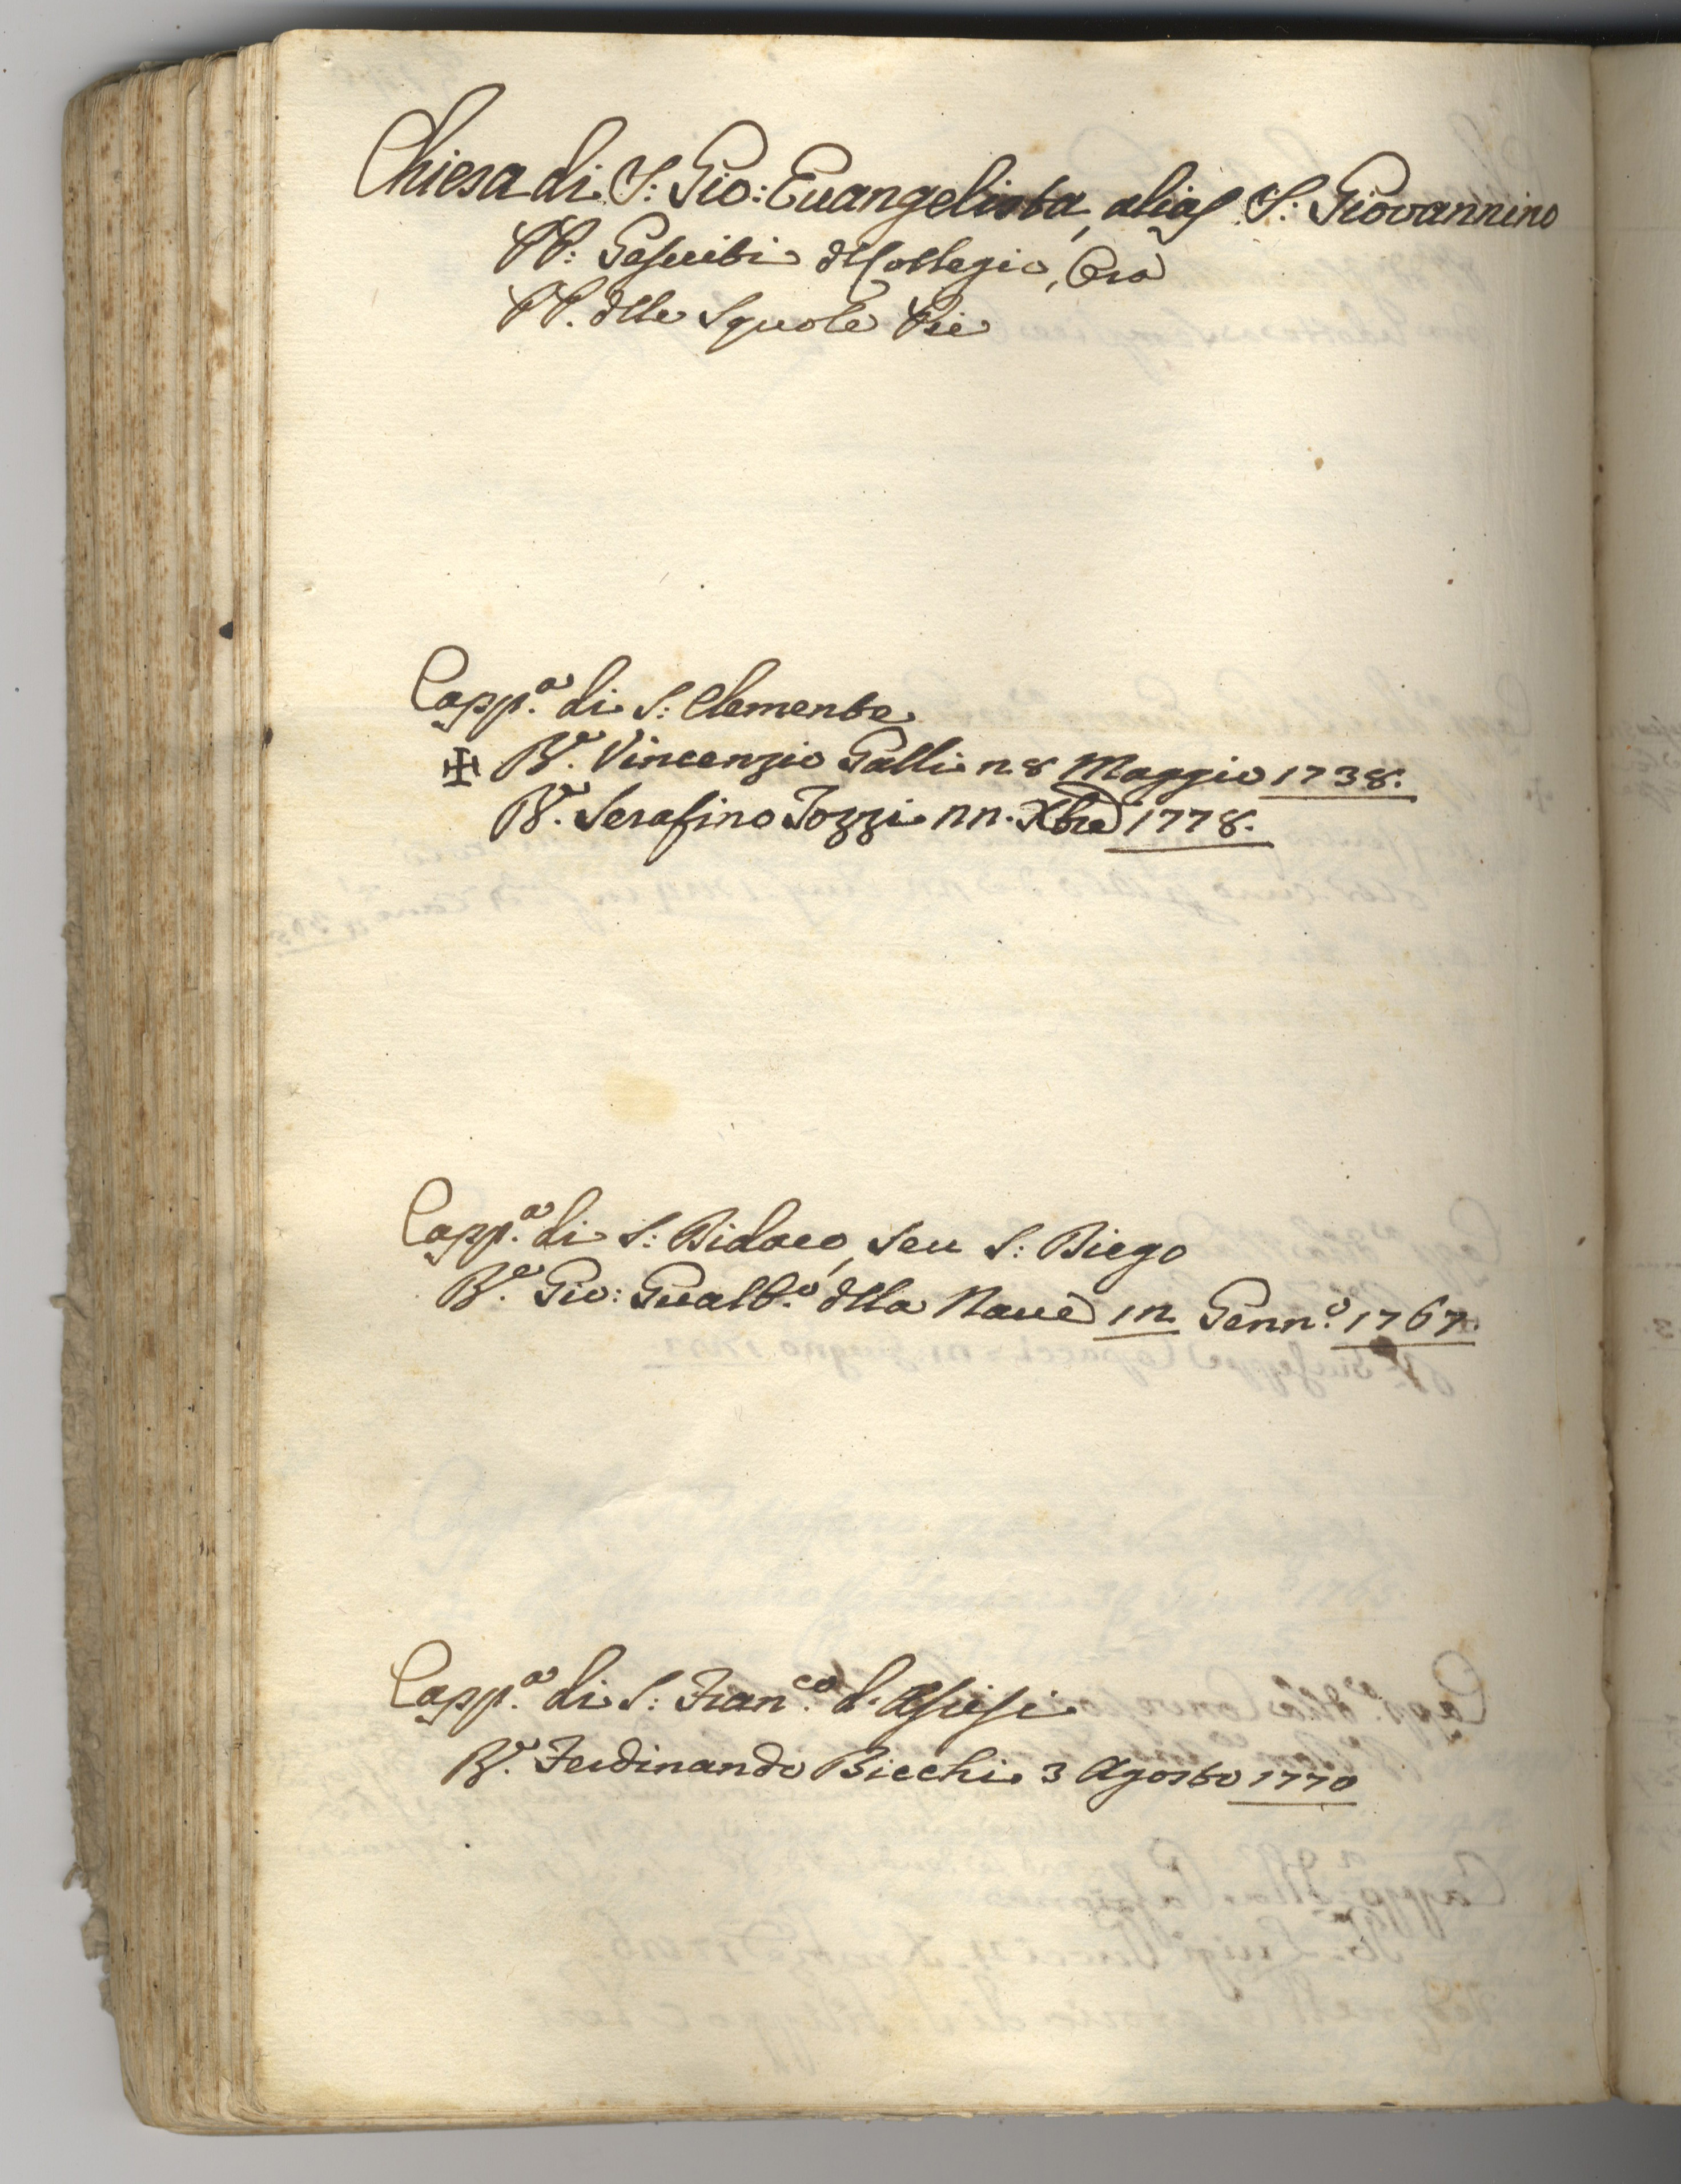 Chiesa di S: Gio: Euangelista, alias S: Giovannino
PP: Gesuiti dl Collegio, Ora
PP. dlle Squole Pie
Capp.a di S: Clemente
✠ R.e Vincenzio Galli 28 Maggio 1738.
R.e Serafino Tozzi 22. Xbre 1778.
Capp.a di S: Didaco, seu S: Diego
R.e Gio: Gualb.o dlla Naue 12. Genn.o 1767.
Capp.a di S: Fran.co d'Assisi
R.e Ferdinando Bicchi 3 Agosto 1770